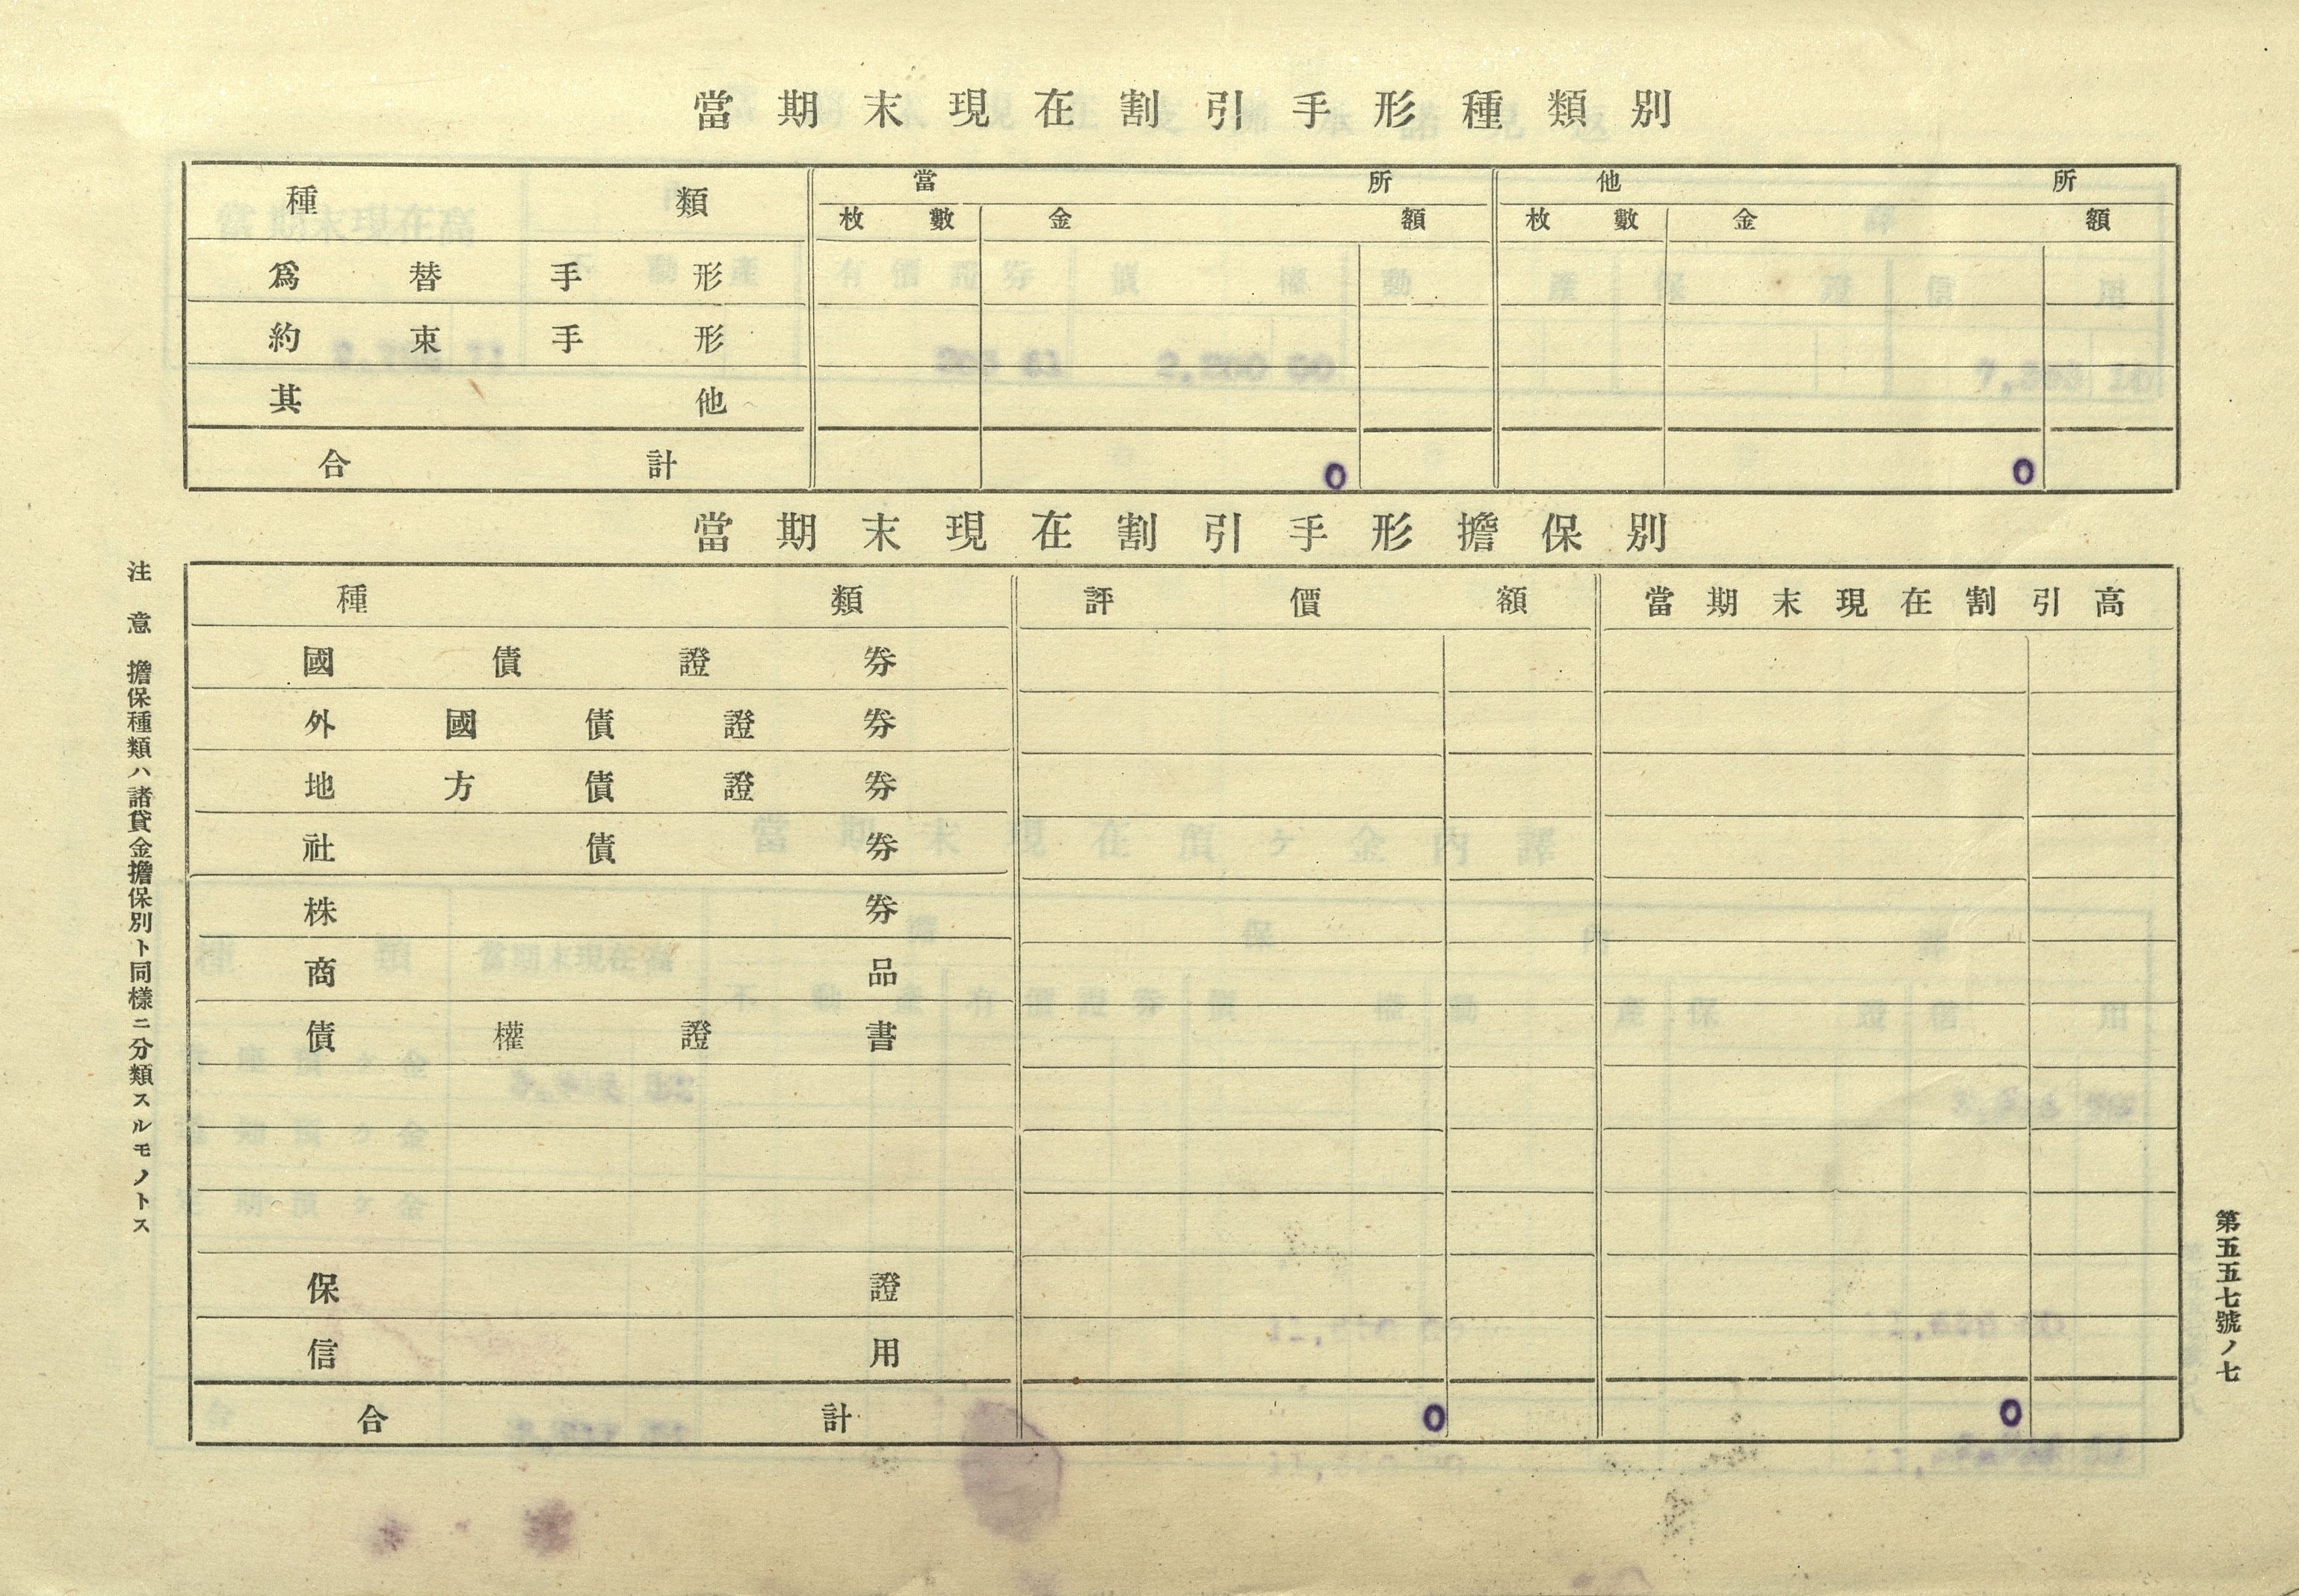 當期末現在割引手形種類別
種類 當所 他所
枚數 金額 枚數 金額
爲替手形
約束手形
其他
合計 0 0
當期末現在割引手形擔保別
種類 評價額 當期末現在割引高
國債證券
外國債證券
地方債證券
社債券
株券
商品
債權證書
保證
信用
合計 0 0
注意 擔保種類ハ諸貸金擔保別ト同樣ニ分類スルモノトス
第五五七號ノ七